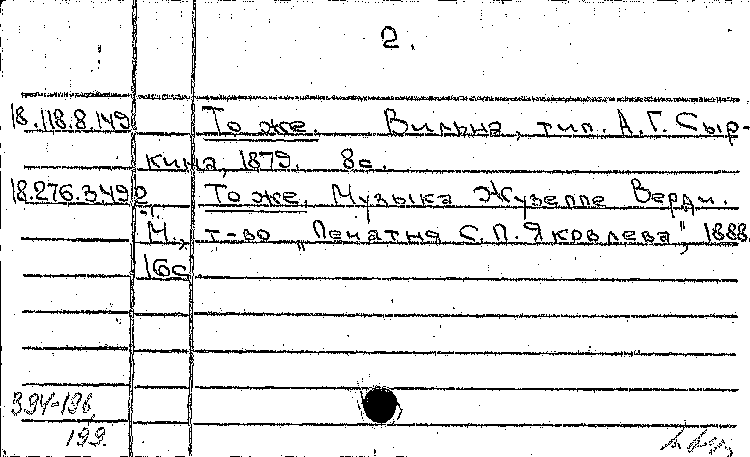 2.
18.118.8.149 То же. Вильна, тип. А.Г. Сыр-
кина, 1879. 8с.
18.276.3.492 То же. Музыка Жузеппе Верди.
М., т-во „Печатня С.П. Яковлева", 1888.
16с
394-196
199.